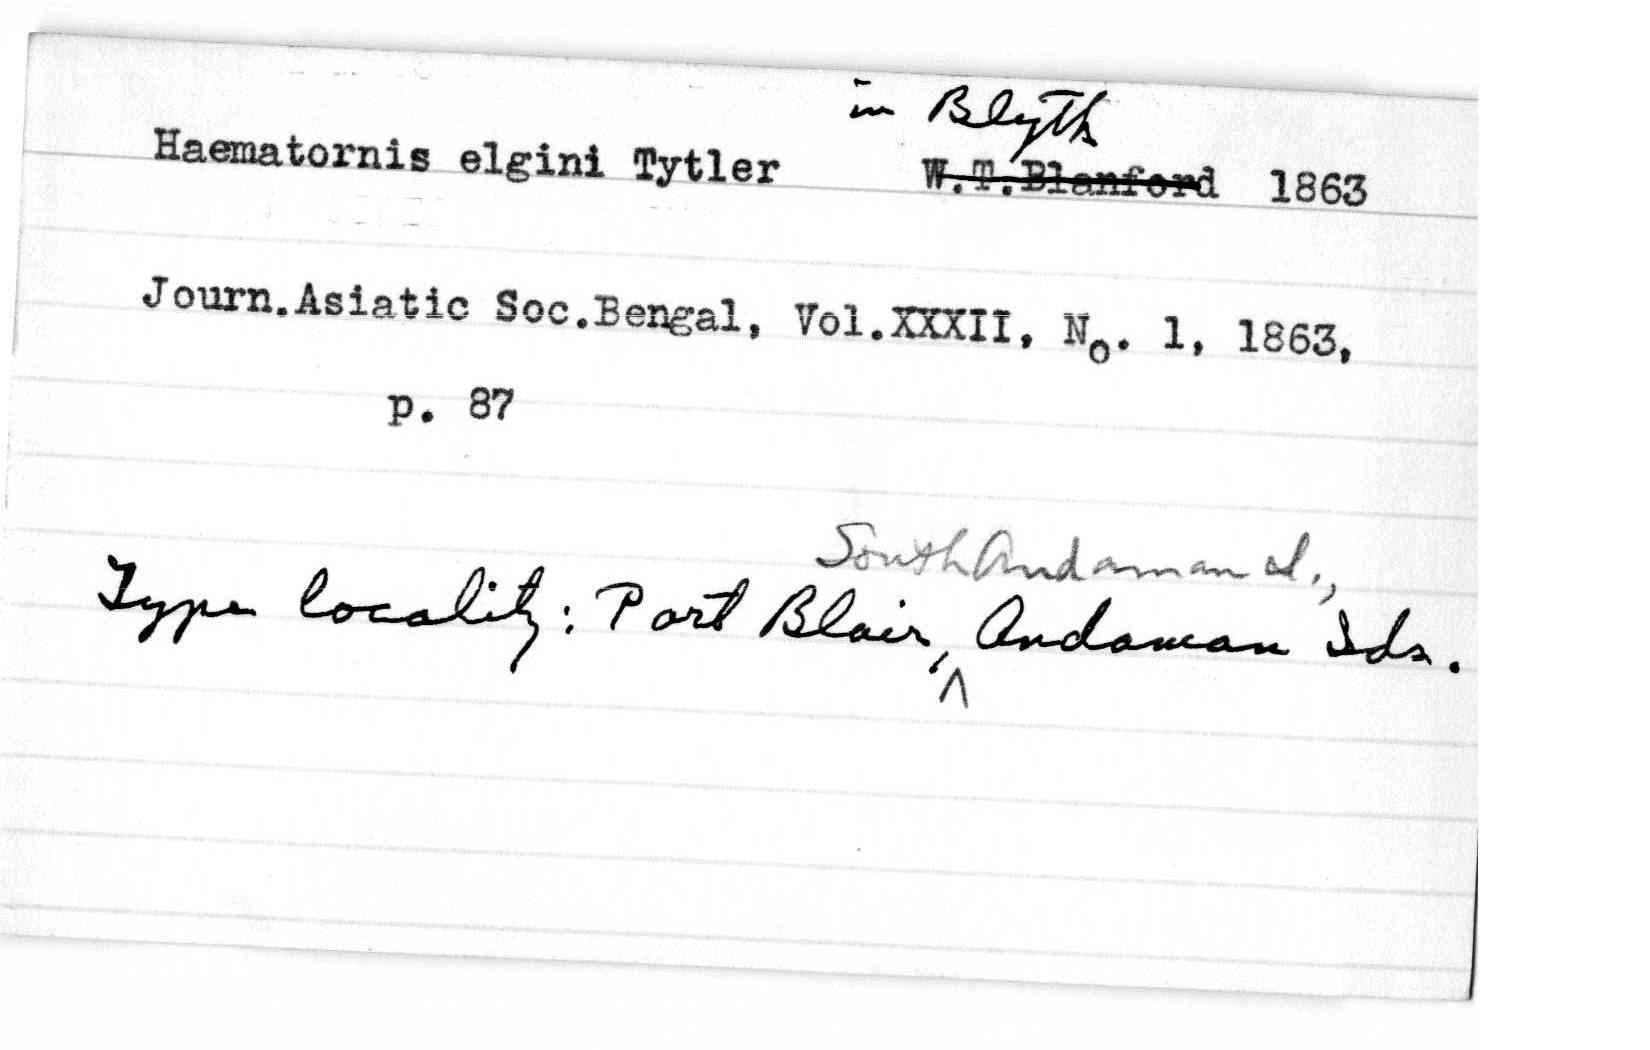 in Blyth
Haematornis elgini Tytler W.T.Blanford 1863
Journ.Asiatic Soc.Bengal, Vol.XXXII, No. 1, 1863,
p. 87
South Andaman I.,
Type locality: Port Blair, ^ Andaman Ids.